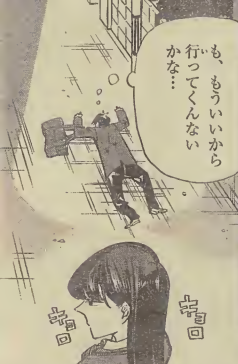 も、もういいから
行ってくんない
かな…
キョロ
キョロ